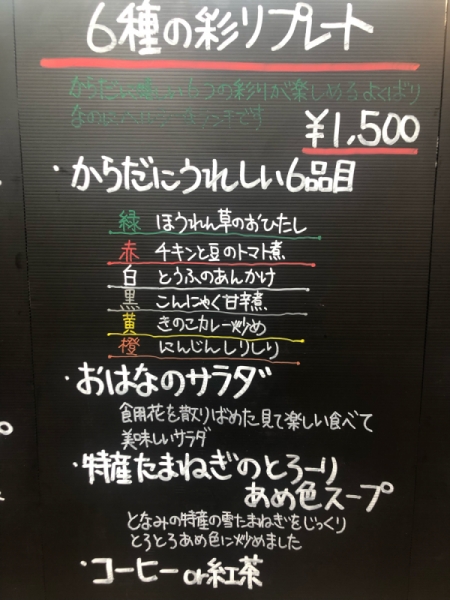 6種の彩りプレート
からだに優しい6つの彩りが楽しめるよくばり
¥1,500
・からだにうれしい6品目
緑 ほうれん草のおひたし
赤 チキンと豆のトマト煮
白 とうふのあんかけ
黒 こんにゃく甘辛煮
黄 きのこカレー炒め
橙 にんじんしりしり
・おはなのサラダ
食用花を散りばめた見て楽しい食べて
美味しいサラダ
・特産たまねぎのとろーり
あめ色スープ
となみの特産の雪たまねぎをじっくり
とろとろあめ色に炒めました
・コーヒーor紅茶